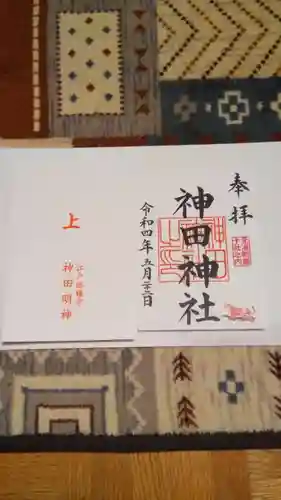 奉拝
神田神社
令和四年五月二十二日
上
江戸総鎮守
神田明神